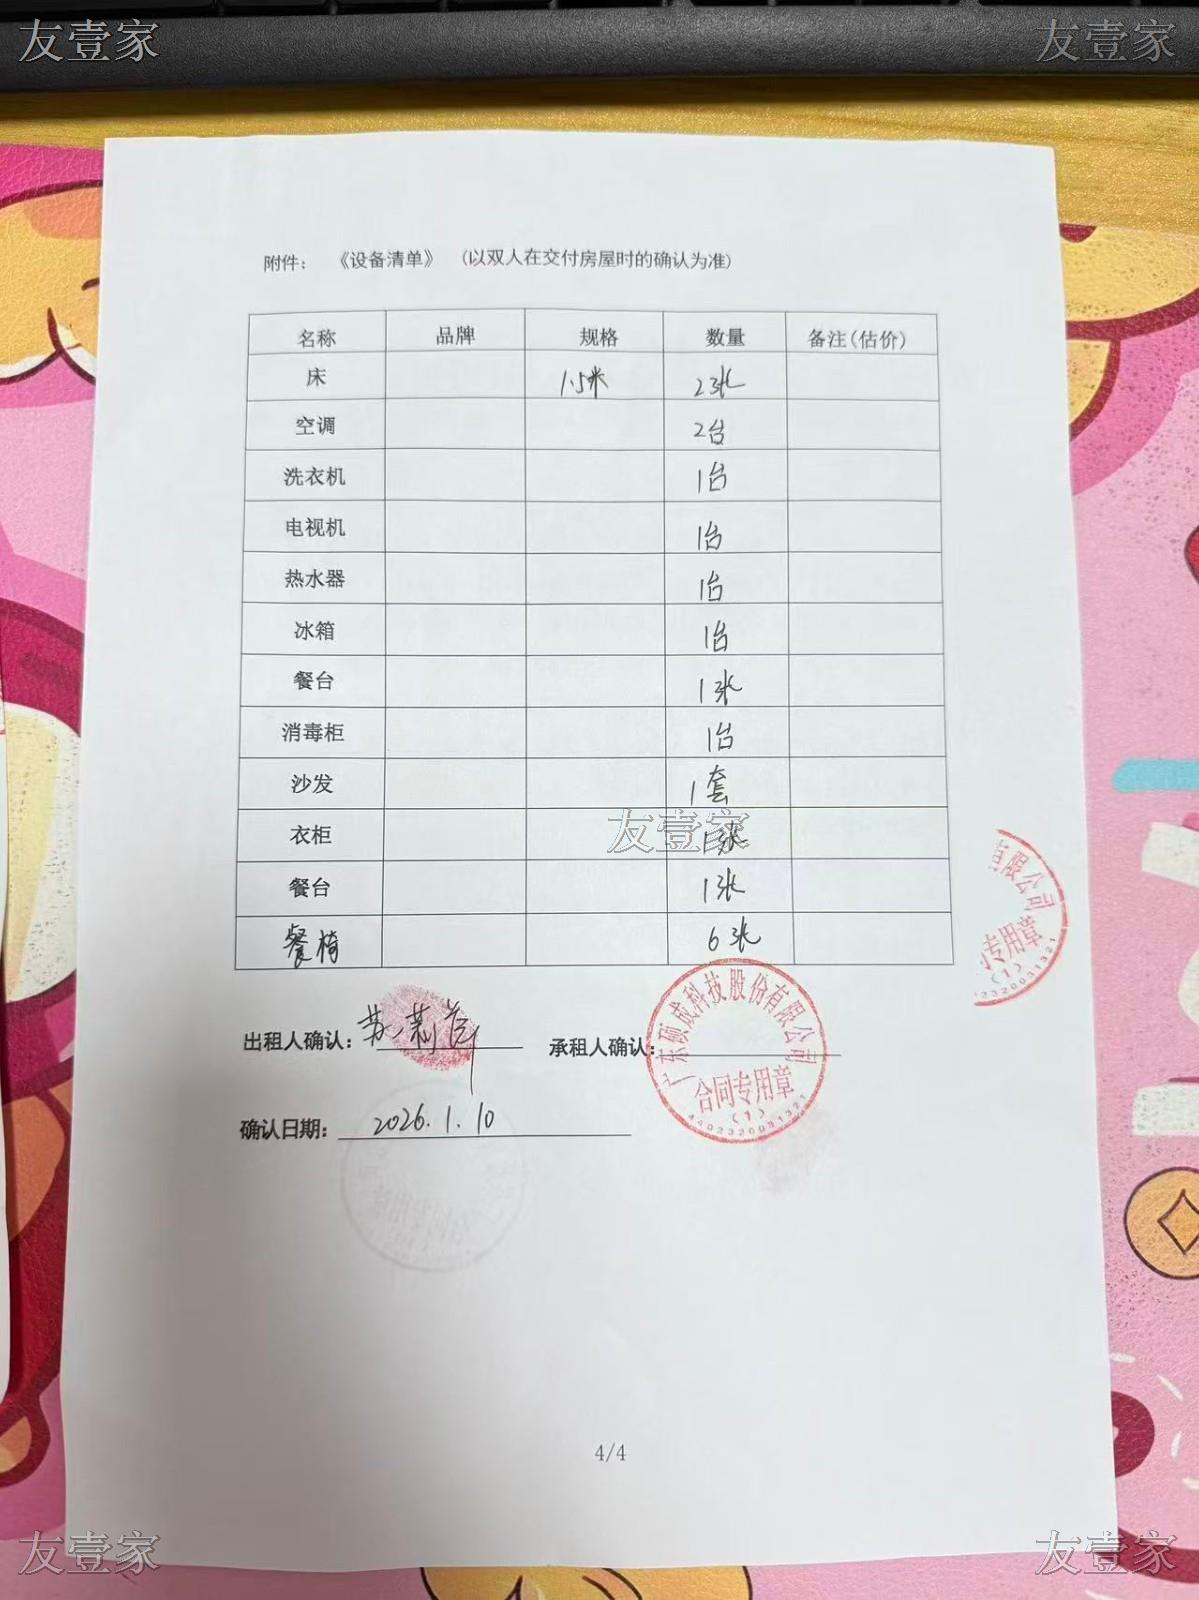 友壹家 友壹家
附件： 《设备清单》 (以双人在交付房屋时的确认为准)
名称 品牌 规格 数量 备注(估价)
床 1.5米 2张
空调 2台
洗衣机 1台
电视机 1台
热水器 1台
冰箱 1台
餐台 1张
消毒柜 1台
沙发 1套
友壹家
衣柜 1张
餐台 1张
餐椅 6张
有限公司
专用章
(1)
02320031321
出租人确认： 苏 承租人确认：
广东硕成科技股份有限公司
合同专用章
(1)
4402320031321
确认日期： 2026.1.10
4/4
友壹家 友壹家